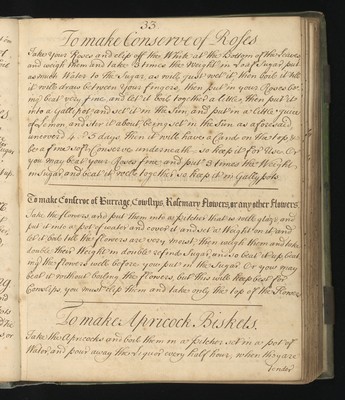 33
To make Conserve of Roses
Take your Roses and clip off the White at the Bottom of the Leaves
and weigh them and take 3 times the Weight in Loaf Sugar, put
as much Water to the Sugar, as will just wet it, then boil it till
it will draw between your fingers, then put in your Roses be
ing beat very fine, and let it boil together a little, then put it
into a Gally pot and set it in the Sun, and put in a little Juice
of Lemon, and stir it about being set in the Sun as aforesaid
uncover'd 4 or 5 days. Then it will have a Cand on the top &
be a fine soft Conserve underneath so keep it for Use. Or
you may beat your Roses fine and put 3 times the Weight
in Sugar and beat it well together so keep it in Gally pots
To make Conserve of Burrage, Cowslips, Rosemary Flowers, or any other Flowers.
Take the flowers and put them into a pitcher that is well glaz'd and
put it into a pot of water and cover it and set a Weight on it and
let it boil till the flowers are very moist, then weigh them and take
double their Weight in double refin'd Sugar, and so beat it up beat
ing the flowers well before you put in the Sugar Or you may
beat it without boiling the flowers but this will keep best for
Cowslips you must clip them and take only the top of the flowers
To make Apricock Biskets.
Take the Apricocks and boil them in a pitcher set in a pot of
Water, and pour away the Liquor every half hour, when they are
tender